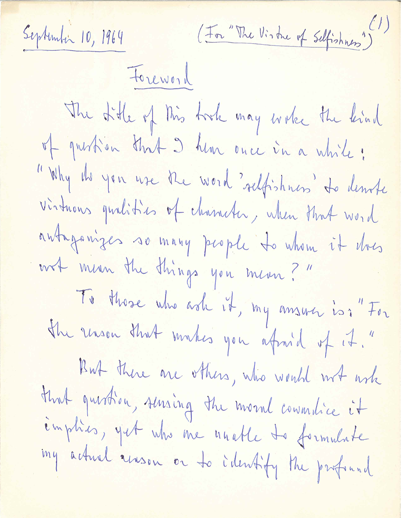 (1)
September 10, 1964 (For "The Virtue of Selfishness")
Foreword
The title of this book may evoke the kind
of question that I hear once in a while:
"Why do you use the word 'selfishness' to denote
virtuous qualities of character, when that word
antagonizes so many people to whom it does
not mean the things you mean?"
To those who ask it, my answer is: "For
the reason that makes you afraid of it."
But there are others, who would not ask
that question, sensing the moral cowardice it
implies, yet who are unable to formulate
my actual reason or to identify the profound